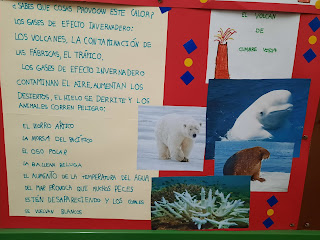 ¿SABES QUE COSAS PROVOCAN ESTE CALOR?
LOS GASES DE EFECTO INVERNADERO:
LOS VOLCANES, LA CONTAMINACIÓN DE
LAS FÁBRICAS, EL TRÁFICO.
LOS GASES DE EFECTO INVERNADERO
CONTAMINAN EL AIRE, AUMENTAN LOS
DESIERTOS, EL HIELO SE DERRITE Y LOS
ANIMALES CORREN PELIGRO:
EL ZORRO ÁRTICO
LA MORSA DEL PACÍFICO
EL OSO POLAR
LA BALLENA BELUGA
EL AUMENTO DE LA TEMPERATURA DEL AGUA
DEL MAR PROVOCA QUE MUCHOS PECES
ESTÉN DESAPARECIENDO Y LOS CORALES
SE VUELVAN BLANCOS
EL VOLCÁN
DE
CUMBRE VIEJA